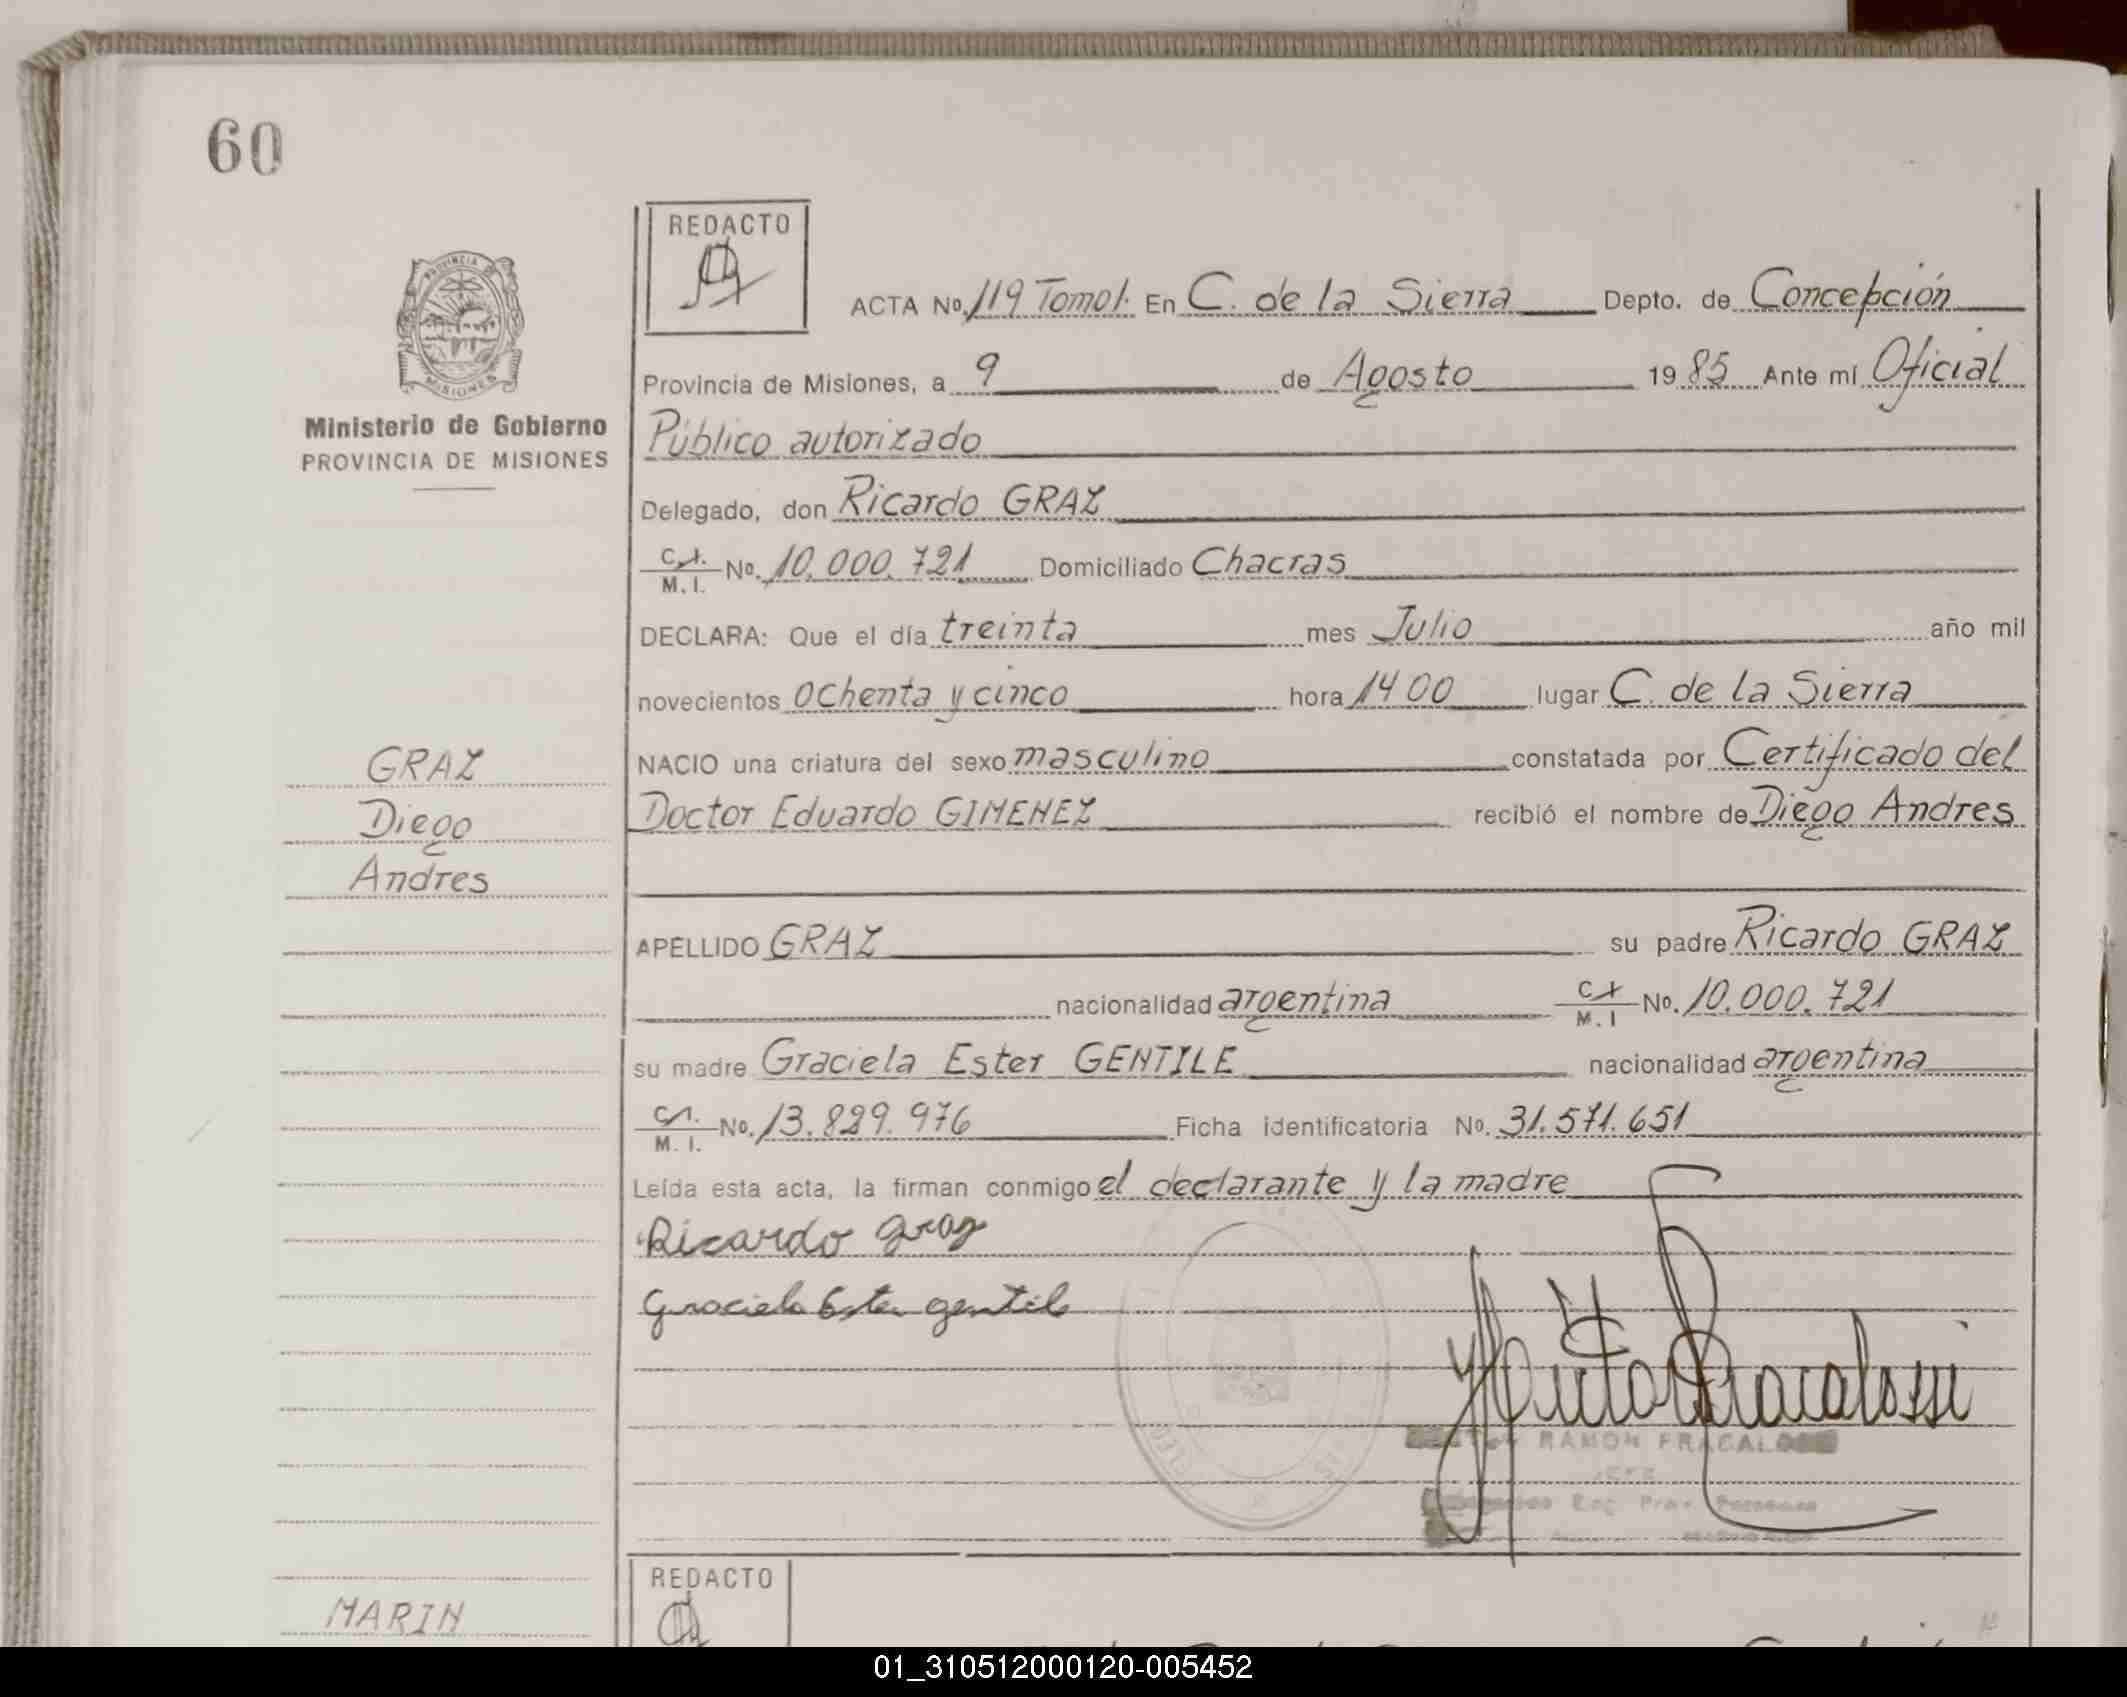 60
REDACTO
PROVINCIA DE
MISIONES
Ministerio de Gobierno
PROVINCIA DE MISIONES
ACTA No. 119 Tomo I. En C. de la Sierra Depto. de Concepción
Provincia de Misiones, a 9 de Agosto 1985 Ante mí Oficial
Público autorizado
Delegado, don Ricardo GRAZ
C.I. M.I. No. 10.000.721 Domiciliado Chacras
DECLARA: Que el día treinta mes Julio año mil
novecientos ochenta y cinco hora 14 00 lugar C. de la Sierra
NACIO una criatura del sexo masculino constatada por Certificado del
Doctor Eduardo GIMENEZ recibió el nombre de Diego Andres
GRAZ
Diego
Andres
APELLIDO GRAZ su padre Ricardo GRAZ
nacionalidad argentina C.I. M.I No. 10.000.721
su madre Graciela Ester GENTILE nacionalidad argentina
C.I. M.I. No. 13.829.976 Ficha identificatoria No. 31.571.651
Leída esta acta, la firman conmigo el declarante y la madre
Ricardo Graz
Graciela Ester gentile
RAMON FRACALOSSI
JEFE
MARIN
REDACTO
01_310512000120-005452